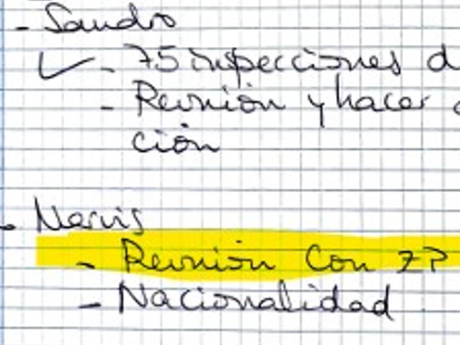 - Sandro
- 75 inspecciones d
- Reunión y hacer
ción
- Nervis
- Reunión Con ZP
- Nacionalidad